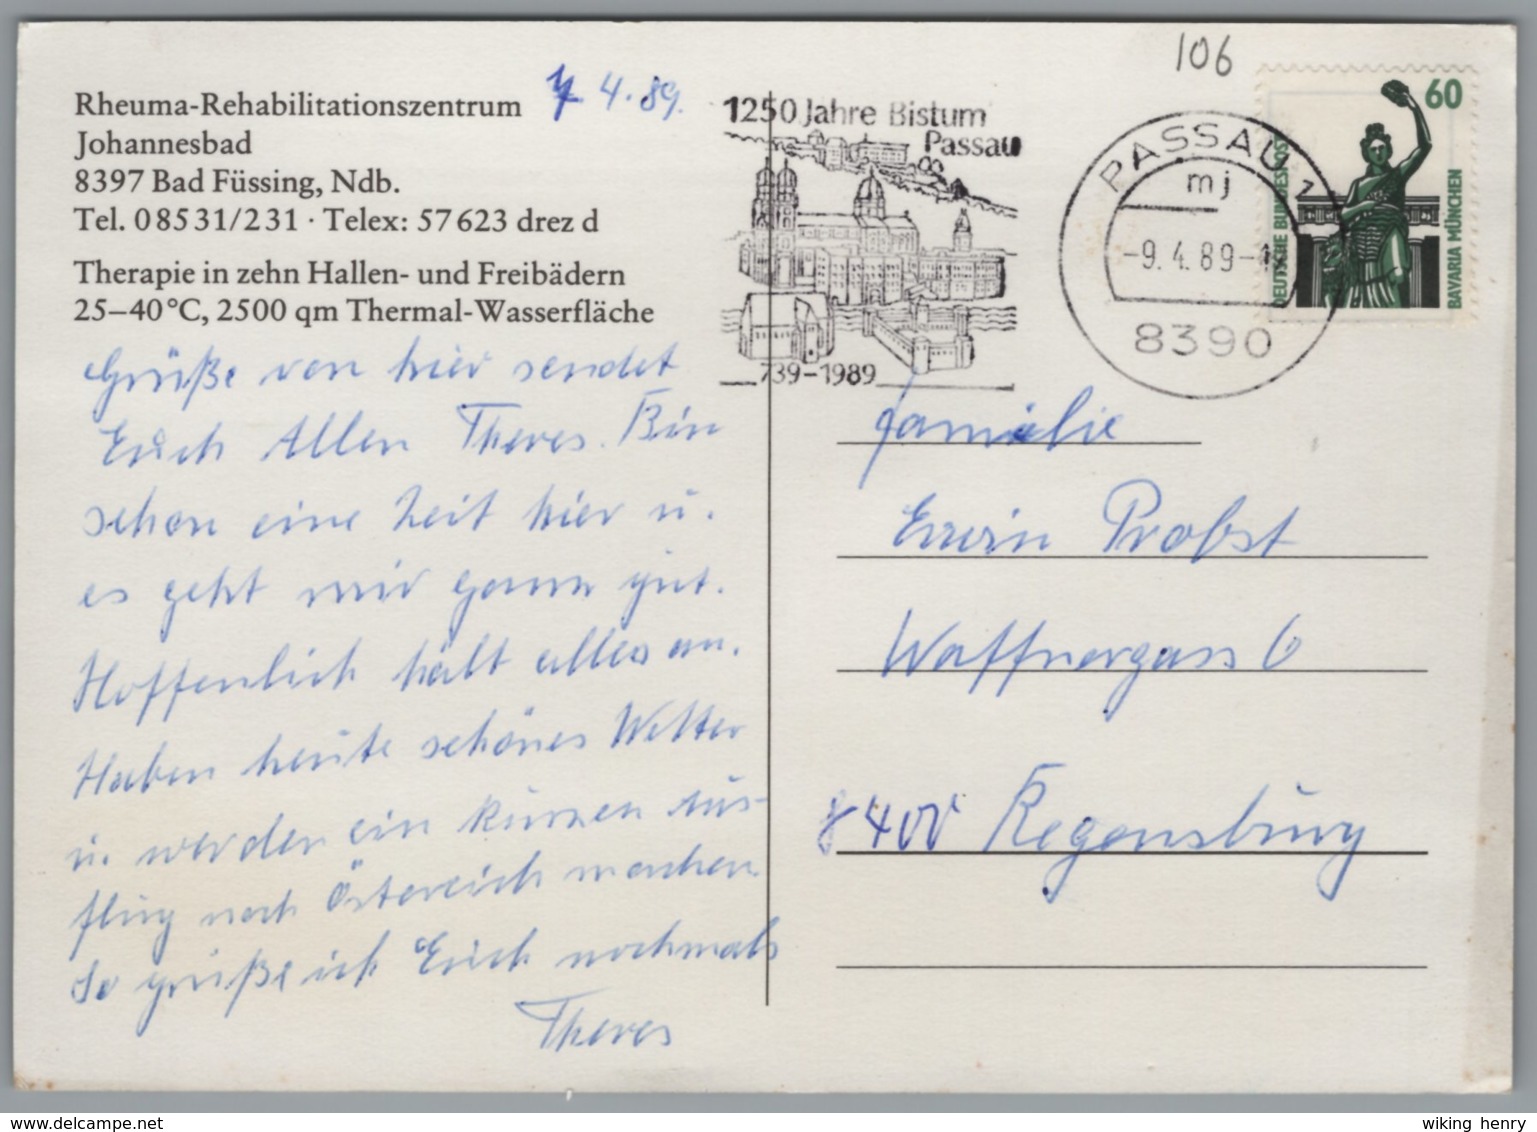 Rheuma-Rehabilitationszentrum
Johannesbad
8397 Bad Füssing, Ndb.
Tel. 08531/231 · Telex: 57623 drez d
Therapie in zehn Hallen- und Freibädern
25–40°C, 2500 qm Thermal-Wasserfläche
7. 4. 89.
Grüße von hier sendet
Euch Allen Theres. Bin
schon eine Zeit hier u.
es geht mir ganz gut.
Hoffenlich hält alles an.
Haben heute schönes Wetter
u. werden ein kurzen Aus-
flug nach Östereich machen.
So grüße ich Euch nochmals
Theres
1250 Jahre Bistum
Passau
739-1989
PASSAU 1
mj
-9.4.89-
8390
106
60
DEUTSCHE BUNDESPOST
BAVARIA MÜNCHEN
Familie
Erwin Probst
Waffnergass 6
8400 Regensburg
wiking henry
www.delcampe.net